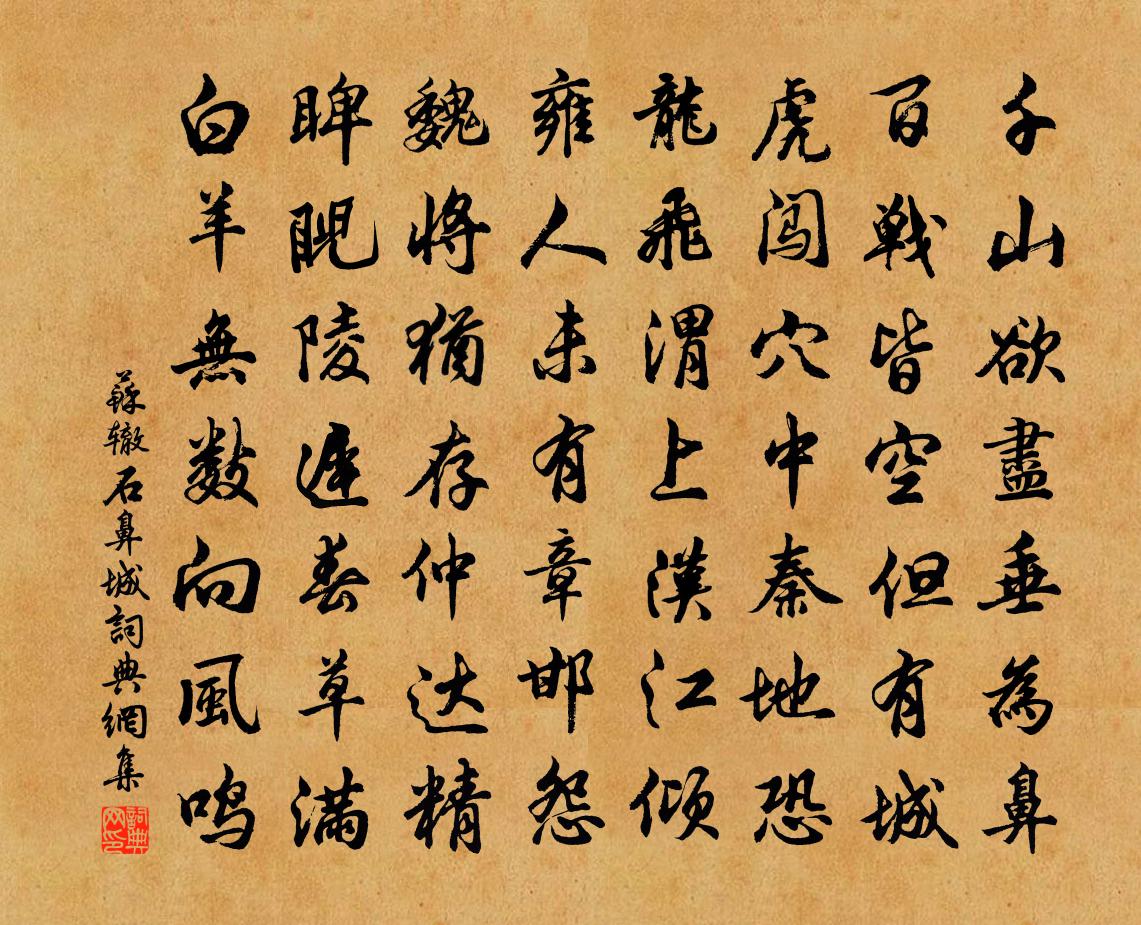 千山欲盡垂為鼻
百戰皆空但有城
虎闯穴中秦地恐
龍飛渭上漢江倾
雍人未有章邯怨
魏將猶存仲达精
睥睨陵遲春草满
白羊無数向風鸣
蘇辙石鼻城詞典網集
詞典网印